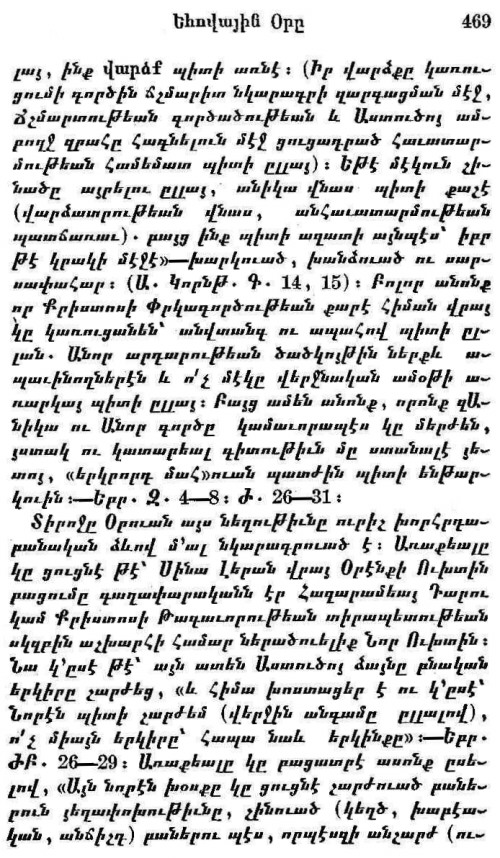 Եհովային Օրը 469
լայ, ինք վարձք պիտի առնէ։ (Իր վարձքը կառու-
ցումի գործին ճշմարիտ նկարագրի զարգացման մէջ,
Ճշմարտութեան գործածութեան և Աստուծոյ ամ-
բողջ զրահը հագնելուն մէջ ցուցադրած հաւատար-
մութեան համեմատ պիտի ըլլայ)։ Եթէ մէկուն շի-
նածը այրելու ըլլայ, անիկա վնաս պիտի քաշէ
(վարձատրութեան վնաս, անհաւատարմութեան
պատճառաւ)․ բայց ինք պիտի ազատի այնպէս՝ իբր
թէ կրակի մէջէ»—խարկուած, խանձուած ու սար-
սափահար։ (Ա․ Կորնթ․ Գ․ 14, 15)։ Բոլոր անոնք
որ Քրիստոսի Փրկագործութեան քարէ հիման վրայ
կը կառուցանեն՝ անվտանգ ու ապահով պիտի ըլ-
լան․ Անոր արդարութեան ծածկոյթին ներքև ա-
պաւինողներէն և ո՛չ մէկը վերջնական ամօթի ա-
ռարկայ պիտի ըլլայ։ Բայց ամեն անոնք, որոնք զԱ-
նիկա ու Անոր գործը կամաւորապէս կը մերժեն,
յստակ ու կատարեալ գիտութիւն մը ստանալէ յե-
տոյ, «երկրորդ մահ»ուան պատժին պիտի ենթար-
կուին։—Եբր․ Զ․ 4—8։ Ժ․ 26—31։
Տիրոջը Օրուան այս նեղութիւնը ուրիշ խորհրդա-
բանական ձևով մ՚ալ նկարագրուած է։ Առաքեալը
կը ցուցնէ թէ՝ Սինա Լերան վրայ Օրէնքի Ուխտին
բացումը գաղափարական էր Հազարամեայ Դարու
կամ Քրիստոսի Թագաւորութեան տիրապետութեան
սկզբին աշխարհի համար ներածուելիք Նոր Ուխտին։
Նա կ՚ըսէ թէ՝ այն ատեն Աստուծոյ ձայնը բնական
երկիրը շարժեց, «և հիմա խոստացեր է ու կ՚ըսէ՝
Նորէն պիտի շարժեմ (վերջին անգամը ըլլալով),
ո՛չ միայն երկիրը՝ հապա նաև երկինքը»։—Եբր․
ԺԲ․ 26—29։ Առաքեալը կը բացատրէ ասոնք ըսե-
լով, «Այն նորէն խօսքը կը ցուցնէ շարժուած բանե-
րուն յեղափոխութիւնը, շինուած (կեղծ, խարէա-
կան, անճիշդ) բաներու պէս, որպէսզի անշարժ (ու-